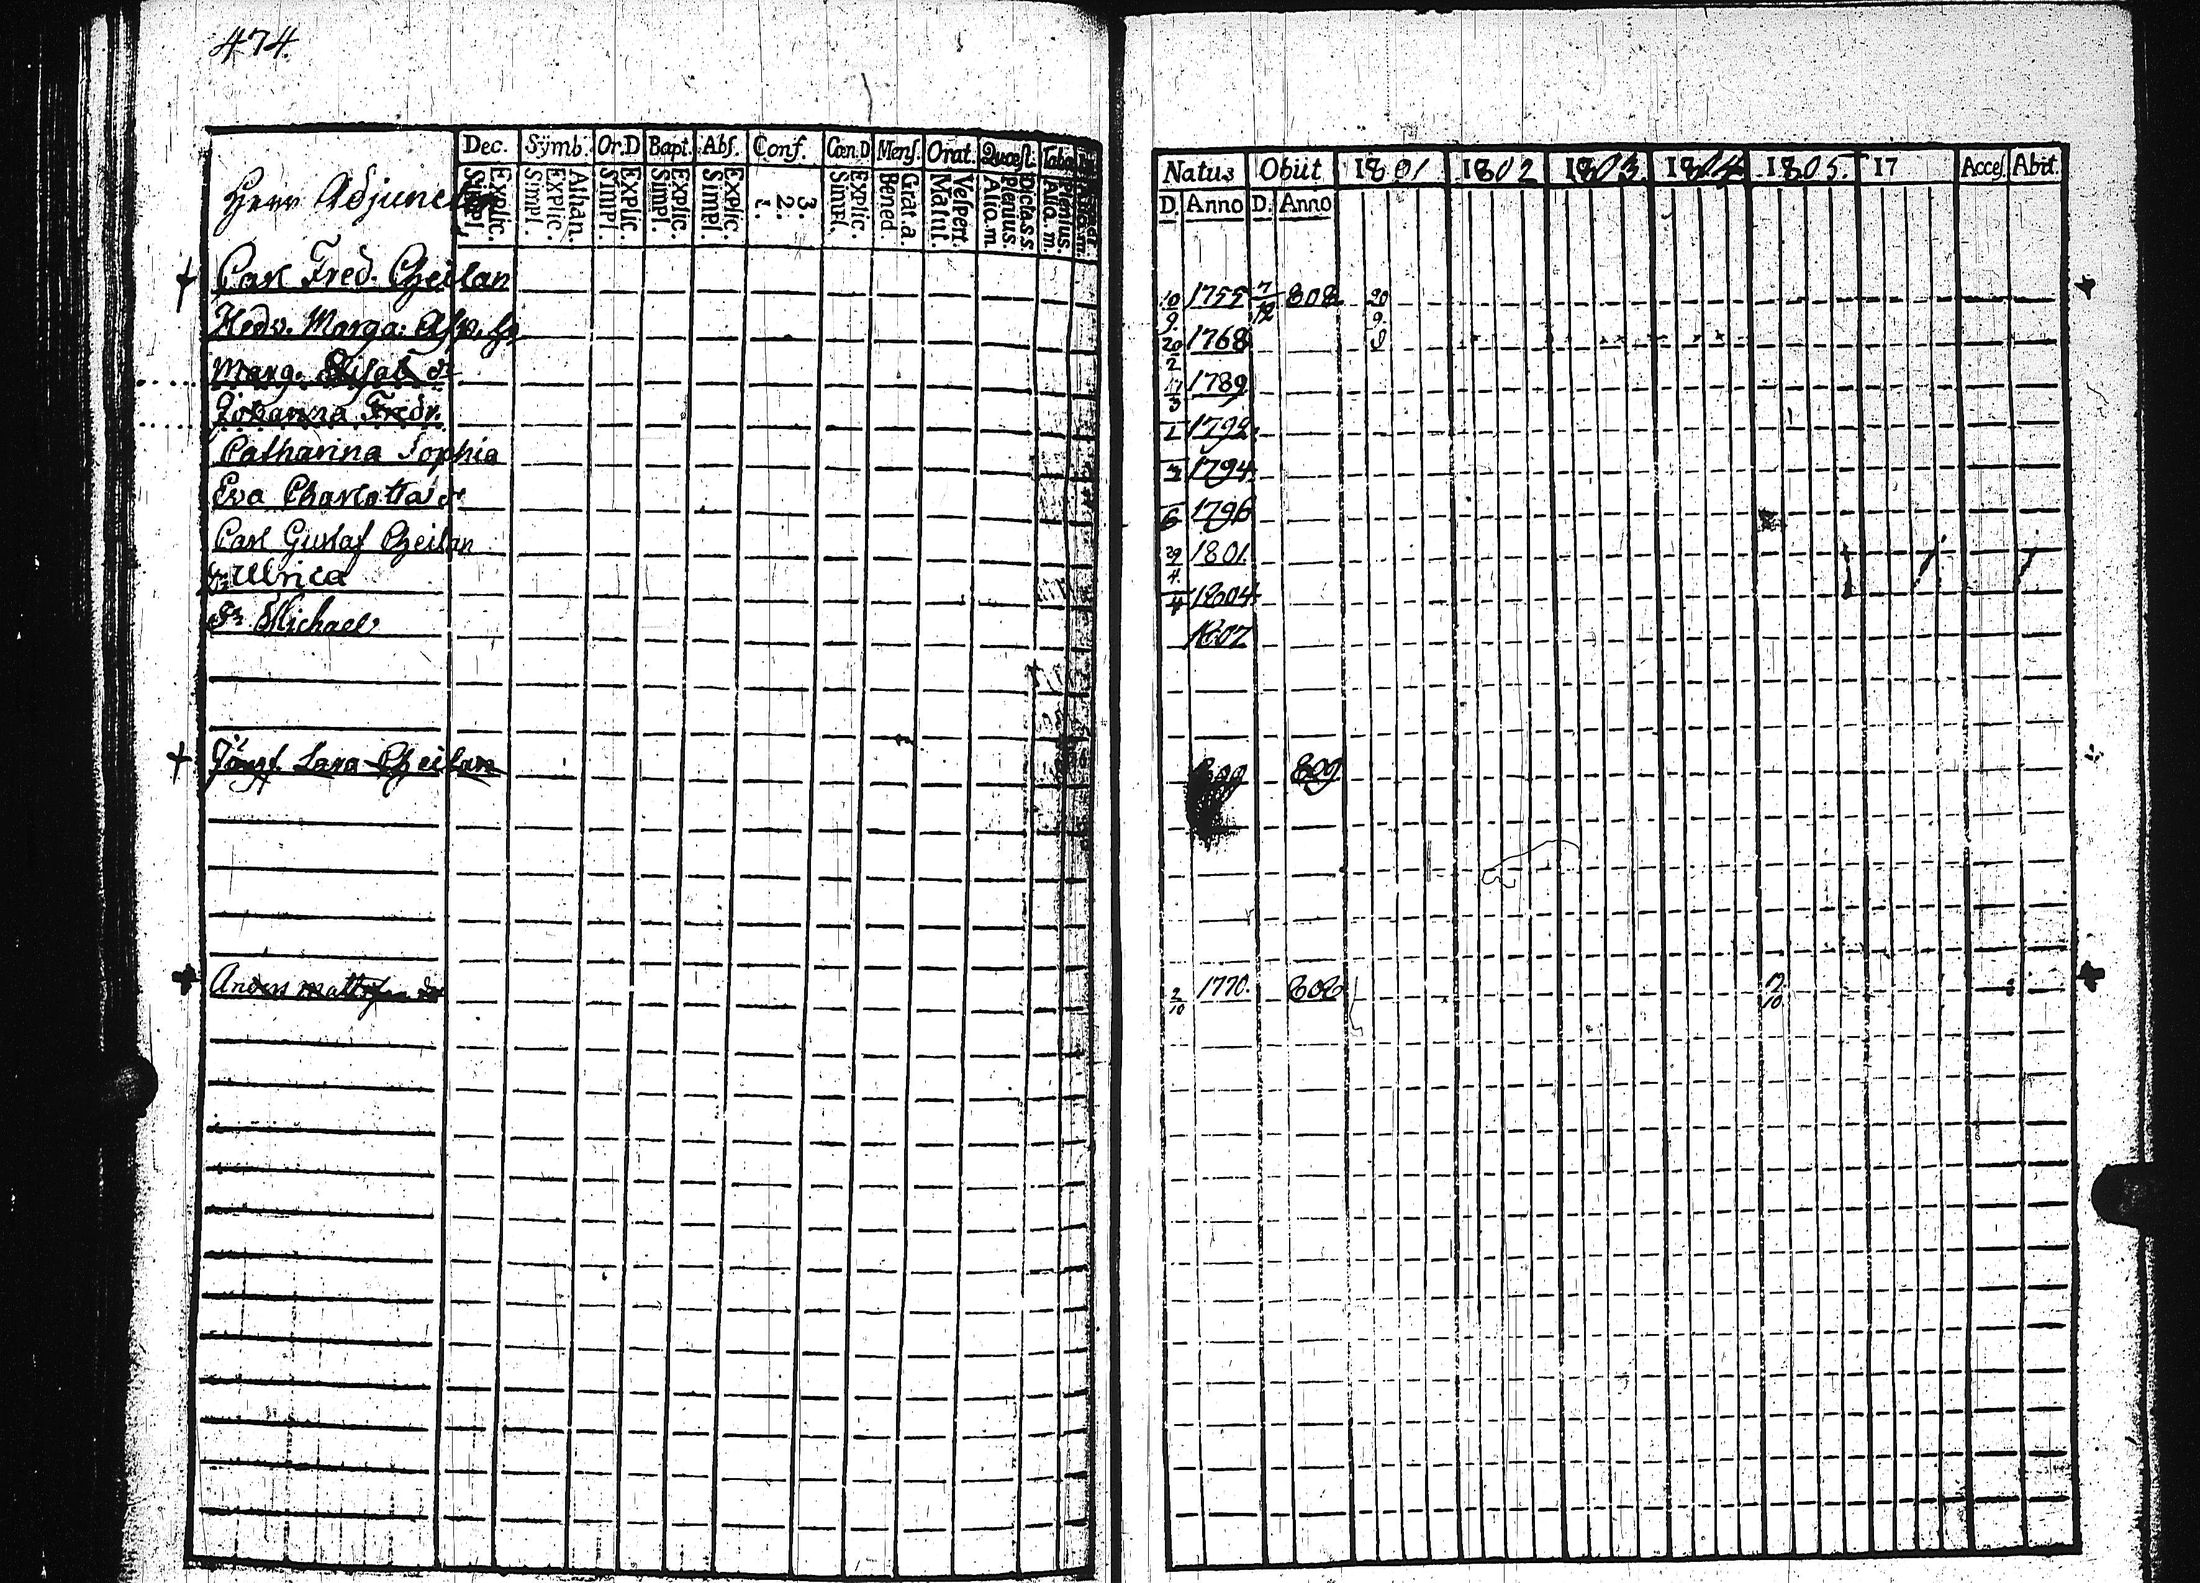 474.
Dec. Symb. Or.D Bapt. Abs. Conf. Cœn.D Mens. Orat. Quæst. Taba
Herr Adjuncten
Explic. Simpl. Athan. Explic. Simpl. Explic. Simpl. Explic. Simpl. Explic. Simpl. 3. 2. 1. Explic. Simpl. Grat.a. Bened. Vespert. Matut. Dicta.s.s. Plenius. Aliq.m. Plenius. Aliq.m.
Natus Obiit 1801 1802 1803 1804 1805. 17 Acces. Abiit.
D. Anno D. Anno
Carl Fred. Cheilan 10/9 1755 7/12 808 20/9
Hedv. Marga: 20/2 1768
Marg. Elisab 1789
Johanna Fredr. 1792
Catharina Sophia 1794
Eva Charlotta 6 1796
Carl Gustaf Cheilan 29/4 1801
Ulrica 4 1804
Michael 1807
Jungf. Sara Cheilan 809
Anders Mattsson 2/10 1770. 808